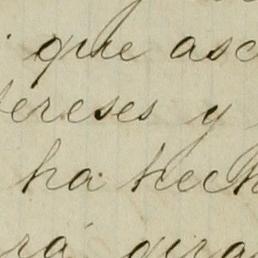 que asc
tereses y
ha hech
rá gira